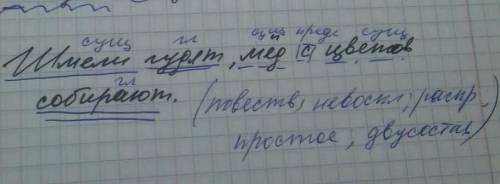 сущ гл сущ предл сущ
Шмели гудят, мёд с цветов
гл
собирают. (повеств, невоскл, распр.
простое, двусостав)